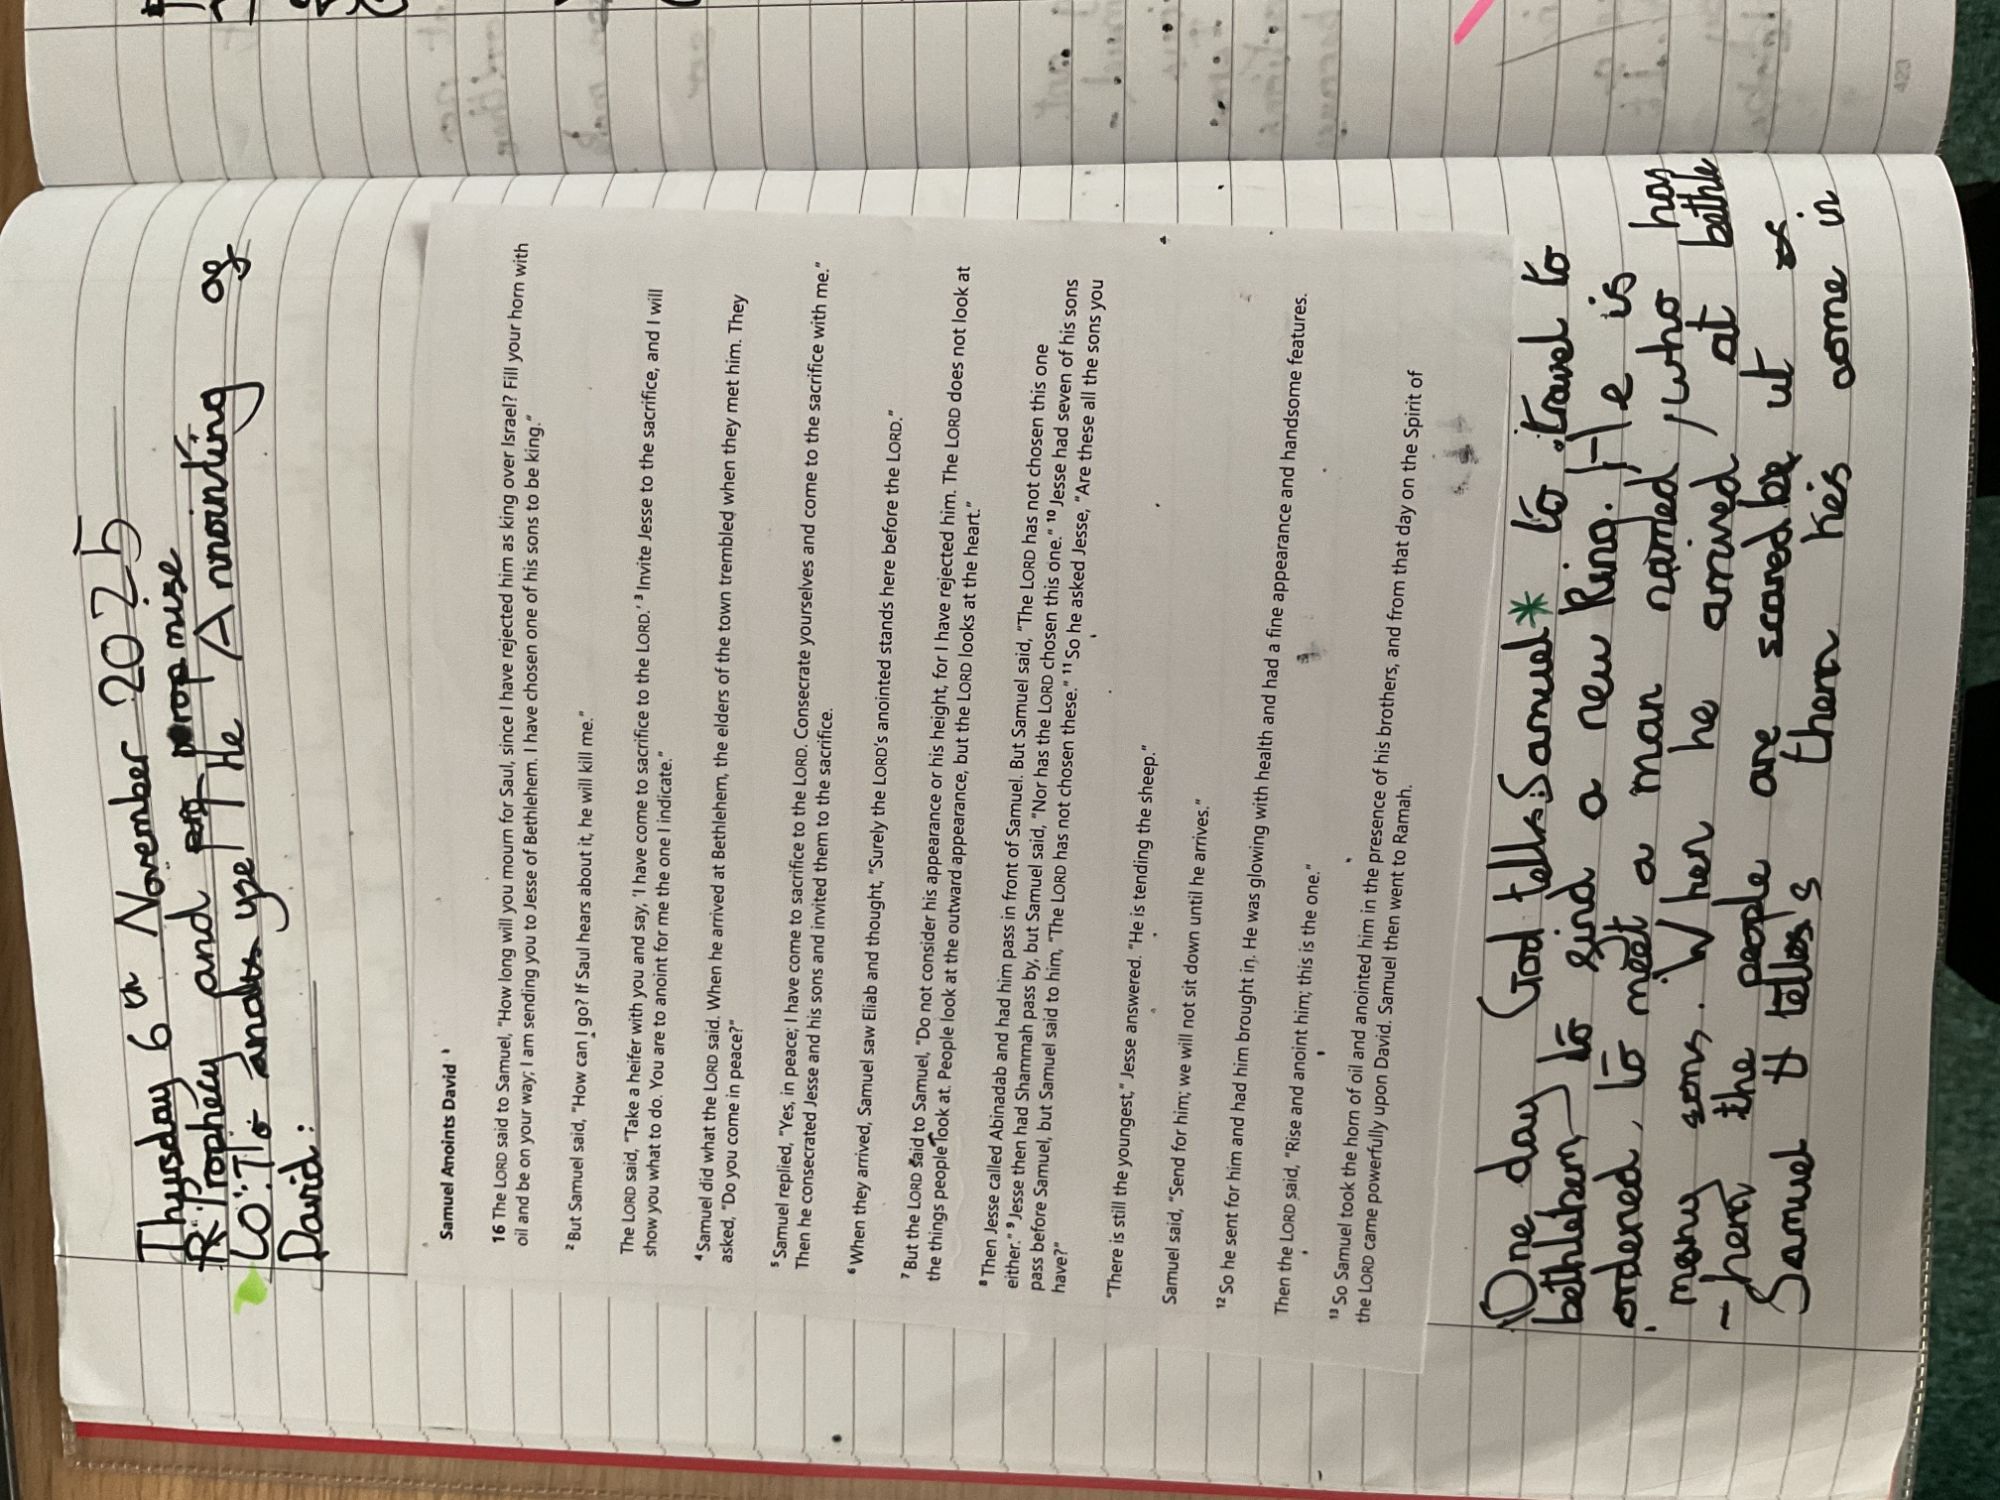 Thursday 6th November 2025
R: Prophecy and promise
LO: To analyse The Annointing of
David:
Samuel Anoints David
16 The LORD said to Samuel, “How long will you mourn for Saul, since I have rejected him as king over Israel? Fill your horn with
oil and be on your way; I am sending you to Jesse of Bethlehem. I have chosen one of his sons to be king.”
2 But Samuel said, “How can I go? If Saul hears about it, he will kill me.”
The LORD said, “Take a heifer with you and say, ‘I have come to sacrifice to the LORD.’ 3 Invite Jesse to the sacrifice, and I will
show you what to do. You are to anoint for me the one I indicate.”
4 Samuel did what the LORD said. When he arrived at Bethlehem, the elders of the town trembled when they met him. They
asked, “Do you come in peace?”
5 Samuel replied, “Yes, in peace; I have come to sacrifice to the LORD. Consecrate yourselves and come to the sacrifice with me.”
Then he consecrated Jesse and his sons and invited them to the sacrifice.
6 When they arrived, Samuel saw Eliab and thought, “Surely the LORD’s anointed stands here before the LORD.”
7 But the LORD said to Samuel, “Do not consider his appearance or his height, for I have rejected him. The LORD does not look at
the things people look at. People look at the outward appearance, but the LORD looks at the heart.”
8 Then Jesse called Abinadab and had him pass in front of Samuel. But Samuel said, “The LORD has not chosen this one
either.” 9 Jesse then had Shammah pass by, but Samuel said, “Nor has the LORD chosen this one.” 10 Jesse had seven of his sons
pass before Samuel, but Samuel said to him, “The LORD has not chosen these.” 11 So he asked Jesse, “Are these all the sons you
have?”
“There is still the youngest,” Jesse answered. “He is tending the sheep.”
Samuel said, “Send for him; we will not sit down until he arrives.”
12 So he sent for him and had him brought in. He was glowing with health and had a fine appearance and handsome features.
Then the LORD said, “Rise and anoint him; this is the one.”
13 So Samuel took the horn of oil and anointed him in the presence of his brothers, and from that day on the Spirit of
the LORD came powerfully upon David. Samuel then went to Ramah.
One day God tells Samuel* to travel to
bethlehem to find a new King. He is
ordered, to meet a man named, who has
many sons. When he arrived, at bethle
-hem the people are scared ut
Samuel tells them he's come in
423